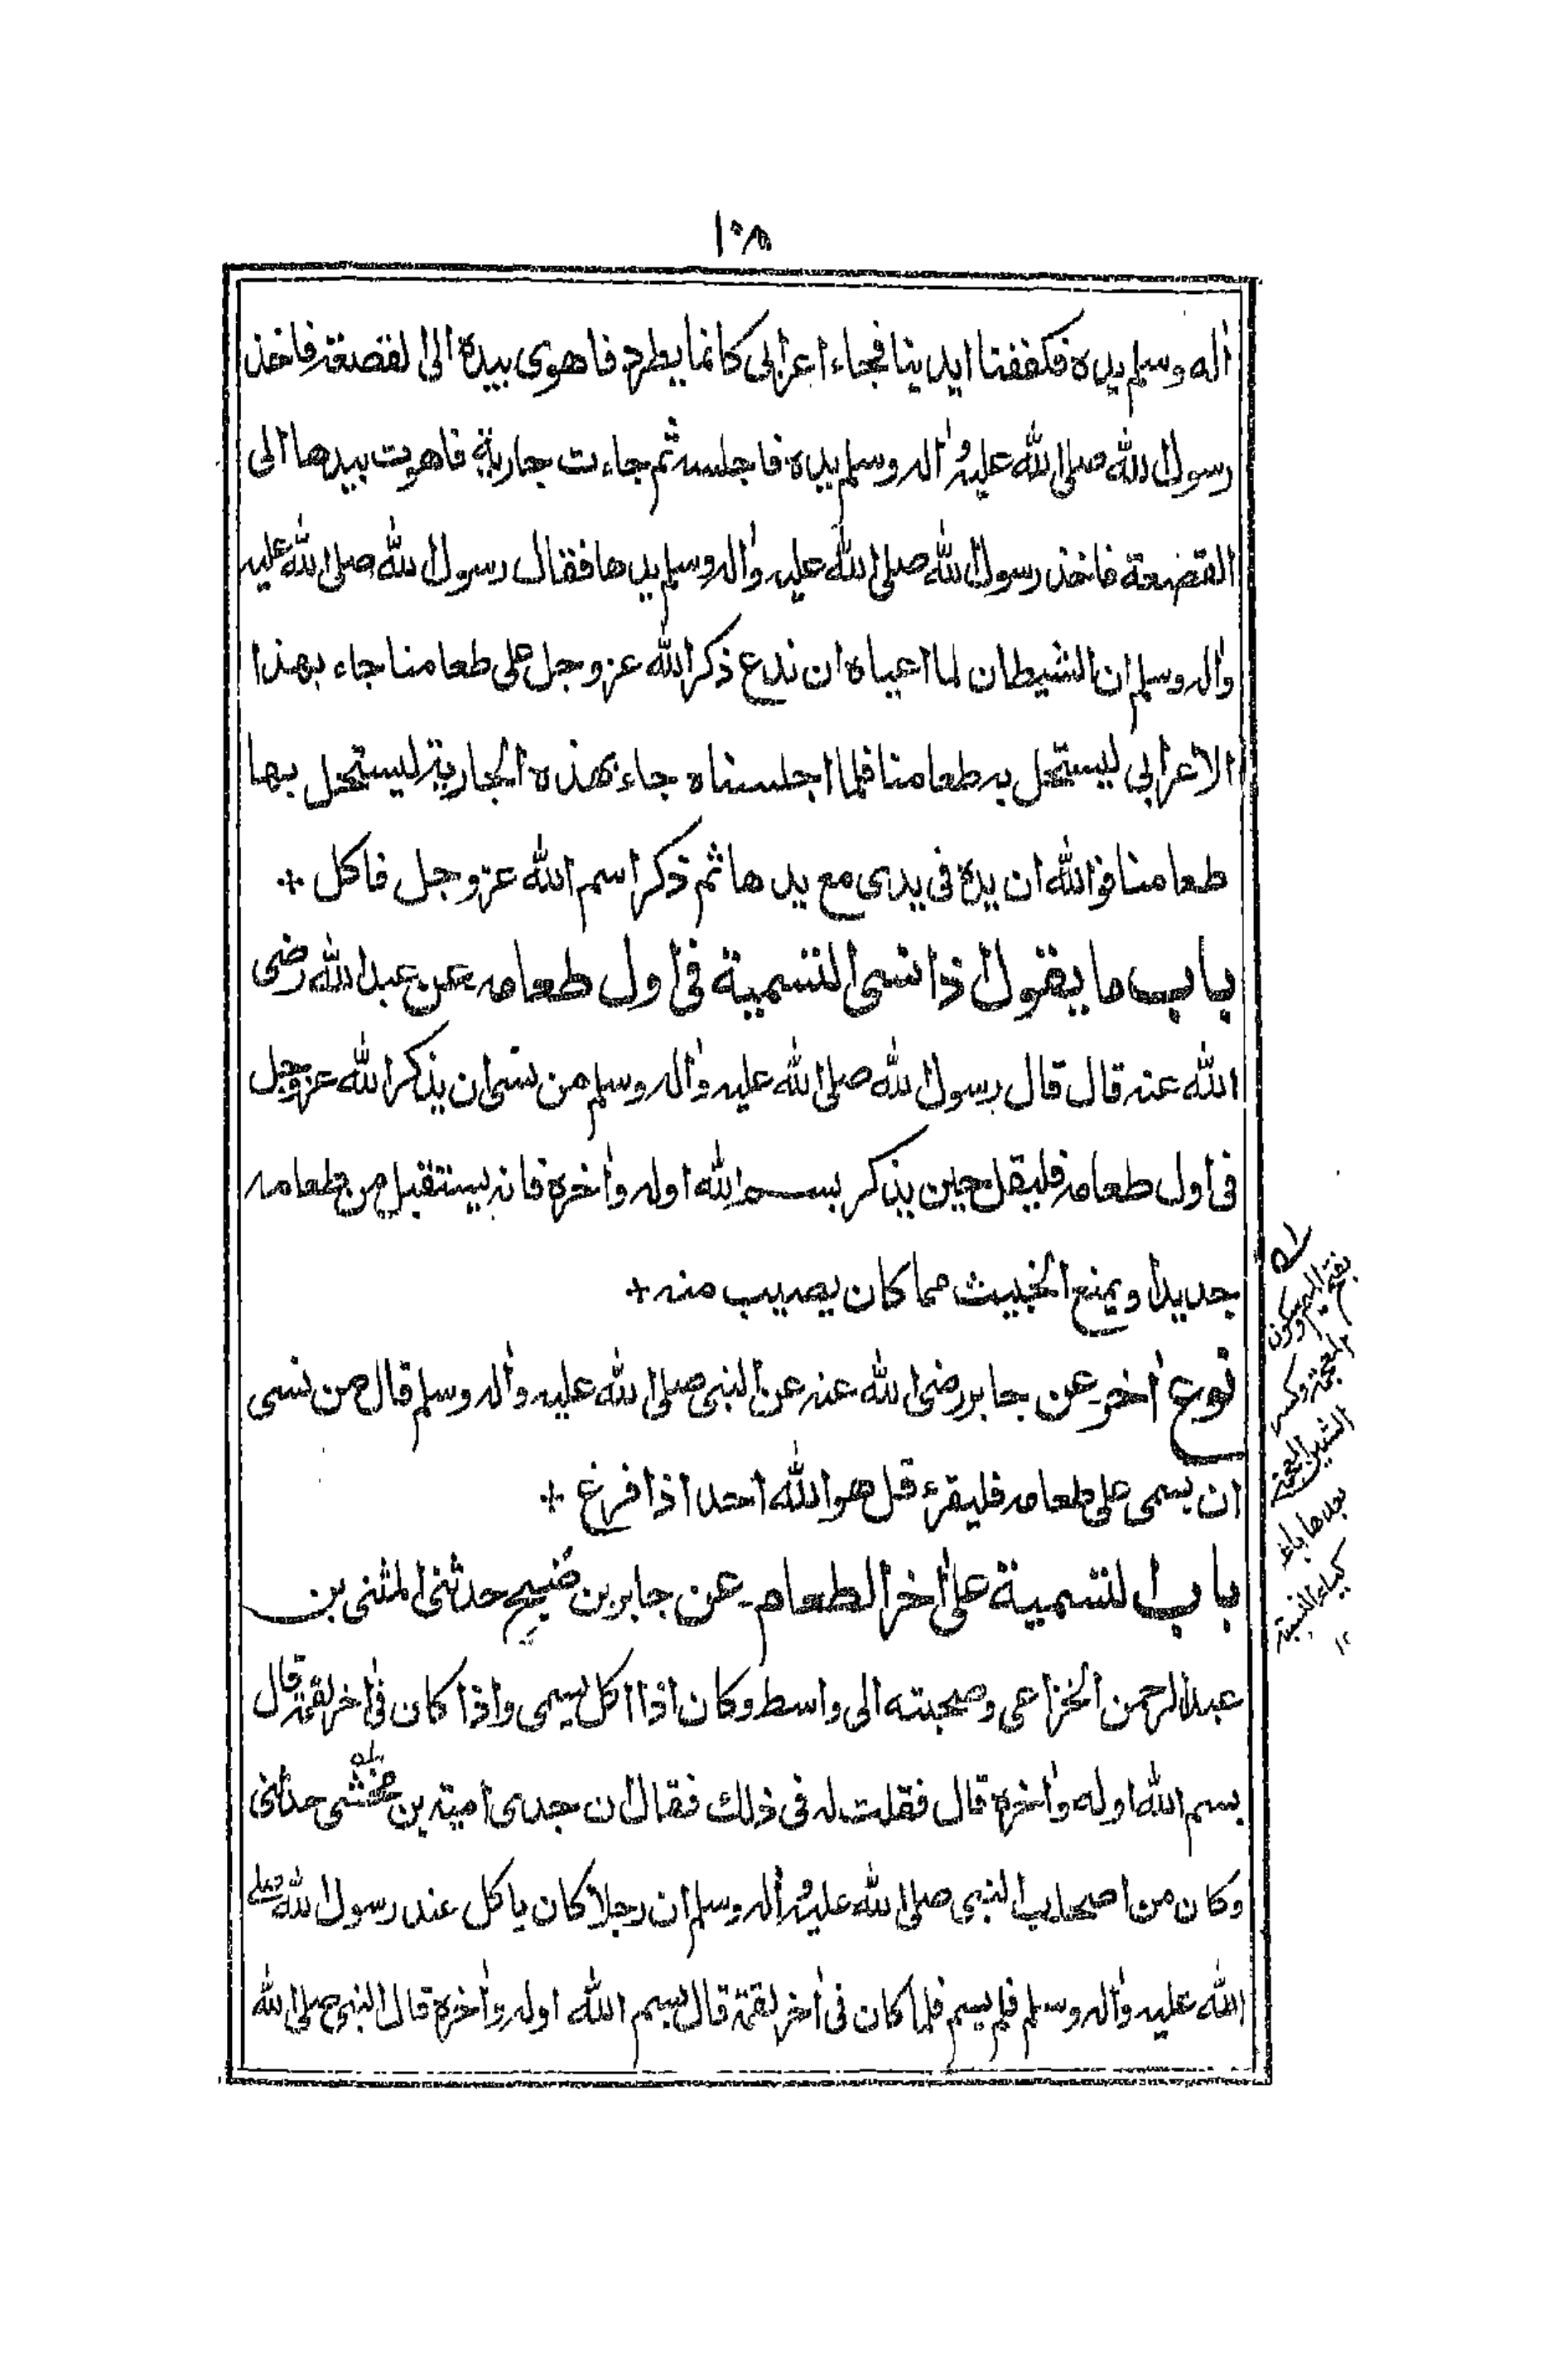 ١٠٨
اٰله وسلم يده فكففنا ايدينا فجاء اعرابى كانما يطرد فاهوى بيده الى القصعة فاخذ
رسول الله صلى الله عليه واٰله وسلم بيده فاجلسه ثم جاءت جارية فاهوت بيدها الى
القصعة فاخذ رسول الله صلى الله عليه واٰله وسلم بيدها فقال رسول الله صلى الله عليه
واٰله وسلم ان الشيطان لما اعياه ان ندع ذكر الله عز وجل على طعامنا جاء بهذا
الاعرابى ليستحل به طعامنا فلما اجلسناه جاء بهذه الجارية ليستحل بها
طعامنا فوالله ان يده فى يدى مع يدها ثم ذكر اسم الله عز وجل فاكل +
باب ما يقول اذا نسى التسمية فى اول طعامه عن عبد الله رضى
الله عنه قال قال رسول الله صلى الله عليه واٰله وسلم من نسى ان يذكر الله عز وجل
فى اول طعامه فليقل حين يذكر بسم الله اوله واٰخره فانه يستقبل من طعامه
جديدا ويمنع الخبيث مما كان يصيب منه +
نوع اٰخر عن جابر رضى الله عنه عن النبى صلى الله عليه واٰله وسلم قال من نسى
ان يسمى على طعامه فليقرء قل هو الله احد اذا فرغ +
باب التسمية على اٰخر الطعام۔ عن جابر بن صُبيح حدثنى المثنى بن
عبد الرحمن الخزاعى وصحبته الى واسط وكان اذا اكل يسمى واذا كان فى اٰخر لقمة قال
بسم الله اوله واٰخره قال فقلت له فى ذلك فقال ان جدى امية بن مخشى حدثنى
وكان من اصحاب النبى صلى الله عليه واٰله وسلم ان رجلا كان ياكل عند رسول الله صلى
الله عليه واٰله وسلم فلم يسم فلما كان فى اٰخر لقمة قال بسم الله اوله واٰخره قال النبى صلى الله
بفتح الميم وسكون
المعجمة وكسر
الشين المعجمة
بعدها ياء
كياء النسبة
١٢